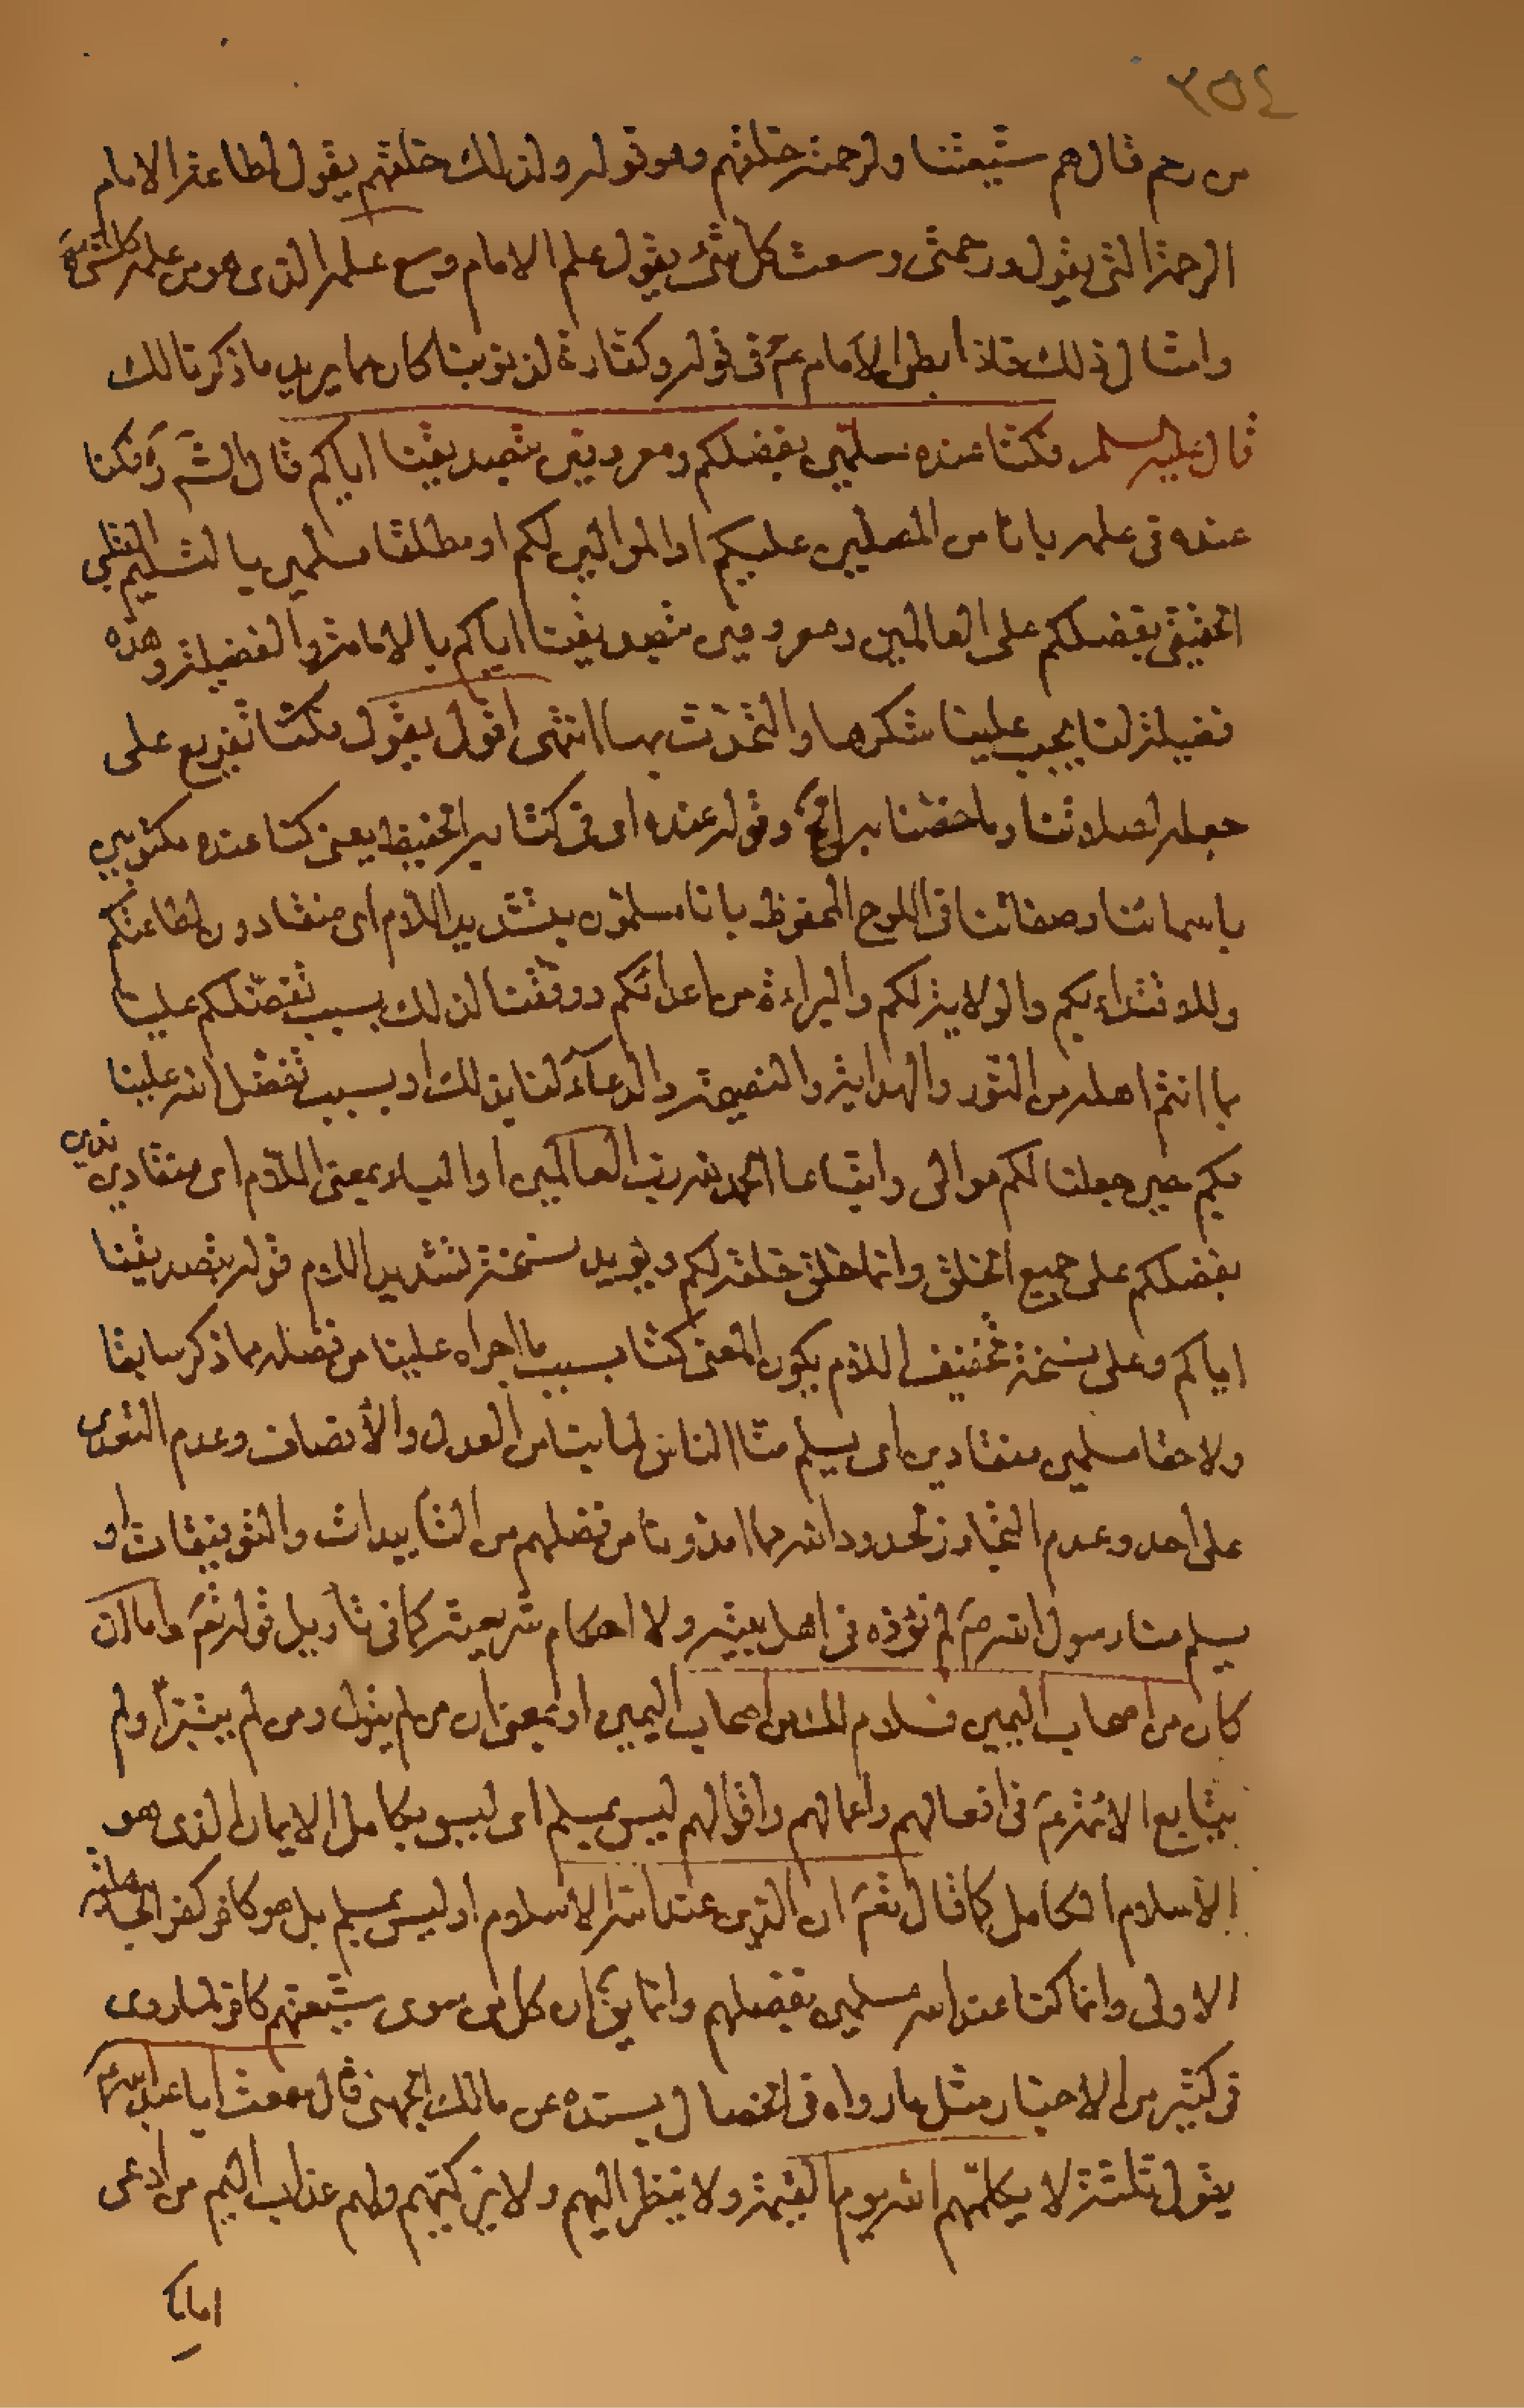 ٣٥٤
من رحم قال هم شيعتنا ولرحمته خلقهم وهو قوله ولذلك خلقهم يقول لطاعة الامام
الرحمة التى يقول ورحمتى وسعت كل شئ يقول علم الامام وسع علمه الذى هو من علمه كل شئ
وامثال ذلك فلاذا بطن الامام عم فى قوله وكفارة لذنوبنا كان مما يريد ما ذكرنا لك
قال عليه السلم فكنا عنده مسلمين بفضلكم ومعروفين بتصديقنا اياكم قال الش ره فكنا
عنده فى علمه بانا من المصلين عليكم او الموالين لكم او مطلقا مسلمين بالتسليم القلبى
الحقيقى بفضلكم على العالمين ومعروفين بتصديقنا اياكم بالامامة والفضيلة وهذه
فضيلة لنا يجب علينا شكرها والتحدّث بها انتهى اقول يقول فكنا تفريع على
جعله لصلاتنا وما خصّنا به الخ وقوله عنده اى فى كتابه الحفيظ يعنى كنا عنده مكتوبين
باسمائنا وصفاتنا فى اللوح المحفوظ بانا مسلمون بتشديد اللام اى منقادون لطاعتكم
وللاقتداء بكم والولاية لكم والبراءة من اعدائكم ووفقنا لذلك بسبب تفضّلكم علينا
بما انتم اهله من النّور والهداية والنصيحة والدعآء لنا بذلك او بسبب تفضّل الله علينا
بكم حين جعلنا لكم موالى واتباعا الحمد لله ربّ العالمين او الباء بمعنى اللّام اى منقادين ندين
بفضلكم على جميع الخلق وانما خلق خلقه لكم ويؤيد نسخة تشديد اللام قوله بتصديقنا
اياكم وعلى نسخة تخفيف اللام يكون المعنى كنا بسبب ما اجراه علينا من فضله مما ذكر سابقا
ولاحقا مسلمين منقادين اى يسلم منّا الناس لما بنا من العدل والأنصاف وعدم التعدى
على احد وعدم التجاوز لحدود الله مما امدّونا من فضلهم من التأييدات والتوفيقات او
يسلم منا رسول الله ص لم نؤذه فى اهل بيته ولا احكام شريعته كما فى تأويل قوله تعم واما ان
كان من اصحاب اليمين فسلام لك من اصحاب اليمين او بمعنى ان من لم يتول ومن لم يتبرّأ ولم
يتابع الائمة عم فى افعالهم واعمالهم واقوالهم ليس بمسلم اى ليس بكامل الايمان الذى هو
الأسلام الكامل كما قال تعم ان الدّين عند الله الأسلام او ليس بمسلم بل هو كافر كفر الجاهلية
الاولى وانما كنا عند الله مسلمين بفضلهم وانما يق ان كل من سوى شيعتهم كافر لما روى
فى كثير من الاخبار مثل ما رواه فى الخصال بسنده عن مالك الجهنى قال سمعت ابا عبد الله عم
يقول ثلثة لا يكلّمهم الله يوم القيمة ولا ينظر اليهم ولا يزكيهم ولهم عذاب اليم من ادعى
اماما